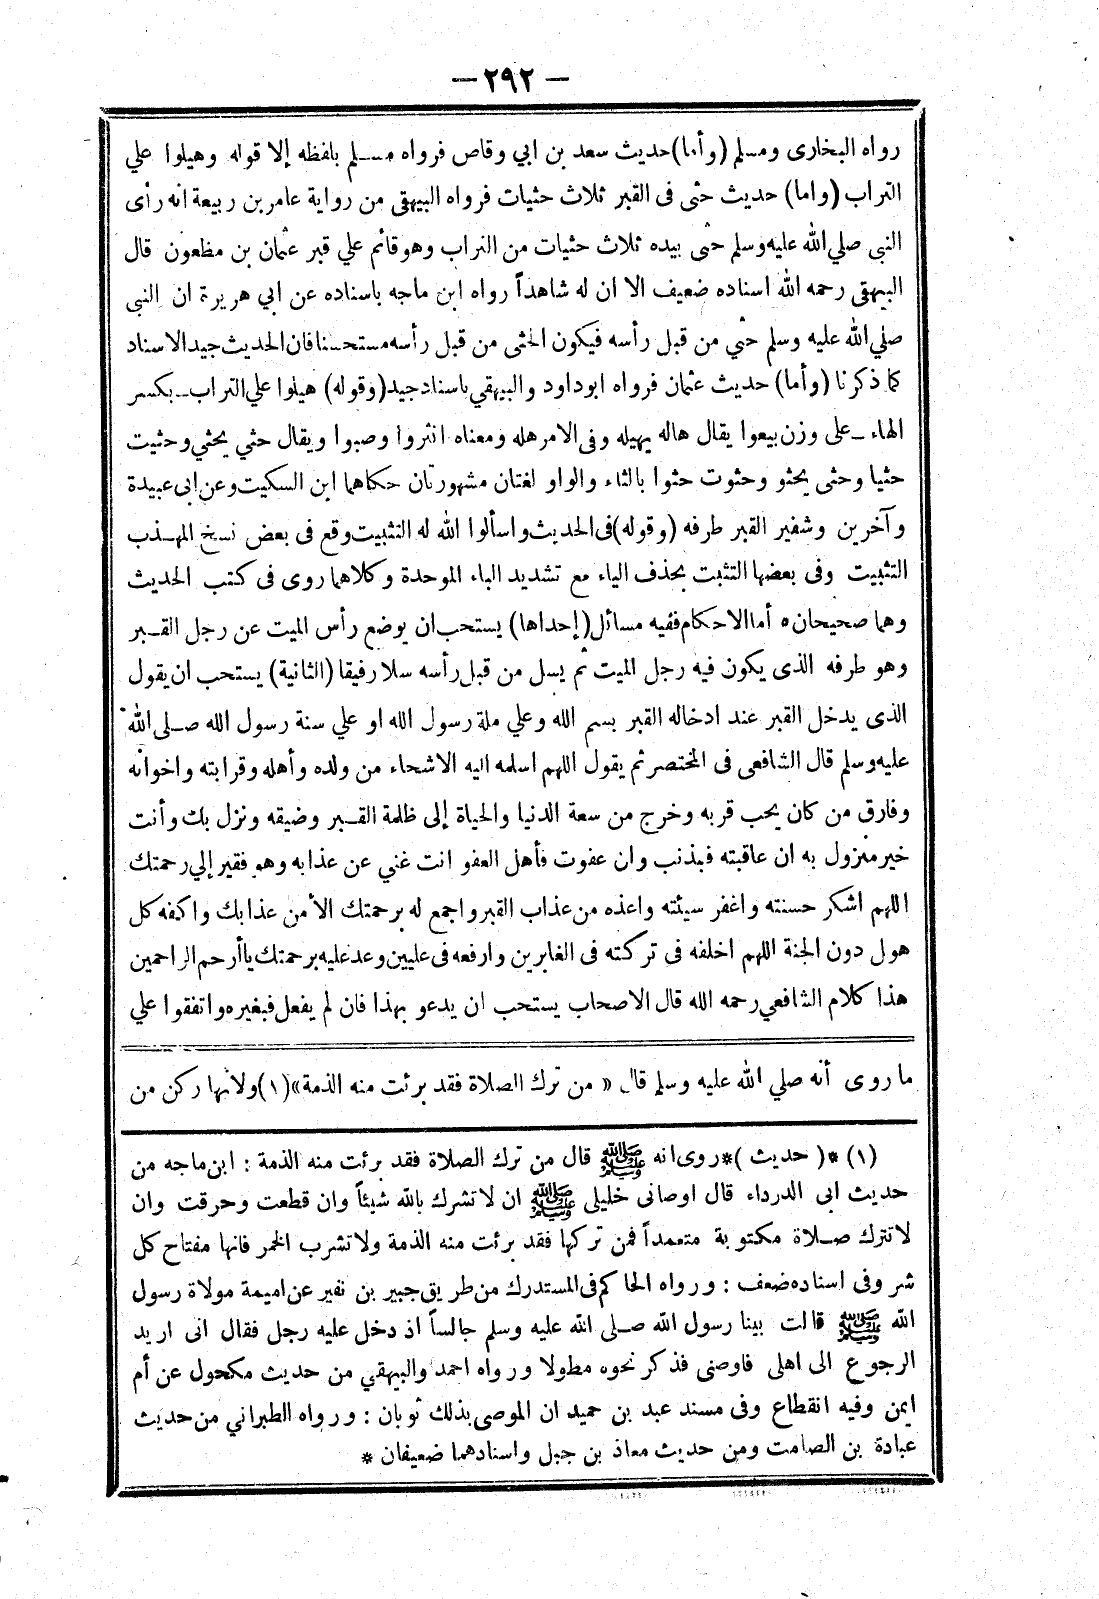 — ٢٩٢ —
رواه البخارى ومسلم (وأما) حديث سعد بن ابي وقاص فرواه مسلم بلفظه إلا قوله وهيلوا علي
التراب (واما) حديث حثى فى القبر ثلاث حثيات فرواه البيهقى من رواية عامر بن ربيعة انه رأى
النبى صلي الله عليه وسلم حثى بيده ثلاث حثيات من التراب وهو قائم علي قبر عثمان بن مظعون قال
البيهقى رحمه الله اسناده ضعيف الا ان له شاهداً رواه ابن ماجه باسناده عن ابي هريرة ان النبى
صلي الله عليه وسلم حثي من قبل رأسه فيكون الحثى من قبل رأسه مستحسنا فان الحديث جيد الاسناد
كما ذكرنا (وأما) حديث عثمان فرواه ابو داود والبيهقي باسناد جيد (وقوله) هيلوا علي التراب ـ بكسر
الهاء ـ على وزن بيعوا يقال هاله يهيله وفى الامر هله ومعناه انثروا وصبوا ويقال حثي يحثي وحثيت
حثيا وحثى يحثو وحثوت حثوا بالثاء والواو لغتان مشهورتان حكاهما ابن السكيت وعن ابى عبيدة
وآخرين وشفير القبر طرفه (وقوله) فى الحديث واسألوا الله له التثبيت وقع فى بعض نسخ المهذب
التثبيت وفى بعضها التثبت بحذف الياء مع تشديد الباء الموحدة وكلاهما روى فى كتب الحديث
وهما صحيحان ٥ أما الاحكام ففيه مسائل (إحداها) يستحب ان يوضع رأس الميت عن رجل القبر
وهو طرفه الذى يكون فيه رجل الميت ثم يسل من قبل رأسه سلا رفيقا (الثانية) يستحب ان يقول
الذى يدخل القبر عند ادخاله القبر بسم الله وعلي ملة رسول الله او علي سنة رسول الله صلى الله
عليه وسلم قال الشافعى فى المختصر ثم يقول اللهم اسلمه اليه الاشحاء من ولده وأهله وقرابته واخوانه
وفارق من كان يحب قربه وخرج من سعة الدنيا والحياة إلى ظلمة القبر وضيقه ونزل بك وأنت
خير منزول به ان عاقبته فبذنب وان عفوت فأهل العفو انت غني عن عذابه وهو فقير إلي رحمتك
اللهم اشكر حسنته واغفر سيئته واعذه من عذاب القبر واجمع له برحمتك الأمن عذابك واكفه كل
هول دون الجنة اللهم اخلفه فى تركته فى الغابرين وارفعه فى عليين وعد عليه برحمتك يا أرحم الراحمين
هذا كلام الشافعي رحمه الله قال الاصحاب يستحب ان يدعو بهذا فان لم يفعل فبغيره واتفقوا علي
ما روى أنه صلي الله عليه وسلم قال « من ترك الصلاة فقد برئت منه الذمة» (١) ولأنها ركن من
(١) *( حديث )* روى انه ﷺ قال من ترك الصلاة فقد برئت منه الذمة : ابن ماجه من
حديث ابى الدرداء قال اوصانى خليلى ﷺ ان لا تشرك بالله شيئاً وان قطعت وحرقت وان
لا تترك صلاة مكتوبة متعمداً فمن تركها فقد برئت منه الذمة ولا تشرب الخمر فانها مفتاح كل
شر وفى اسناده ضعف : ورواه الحاكم فى المستدرك من طريق جبير بن نفير عن اميمة مولاة رسول
الله ﷺ قالت بينا رسول الله صلى الله عليه وسلم جالساً اذ دخل عليه رجل فقال انى اريد
الرجوع الى اهلى فاوصنى فذكر نحوه مطولا ورواه احمد والبيهقي من حديث مكحول عن أم
ايمن وفيه انقطاع وفى مسند عبد بن حميد ان الموصى بذلك ثوبان : ورواه الطبراني من حديث
عبادة بن الصامت ومن حديث معاذ بن جبل واسنادهما ضعيفان *